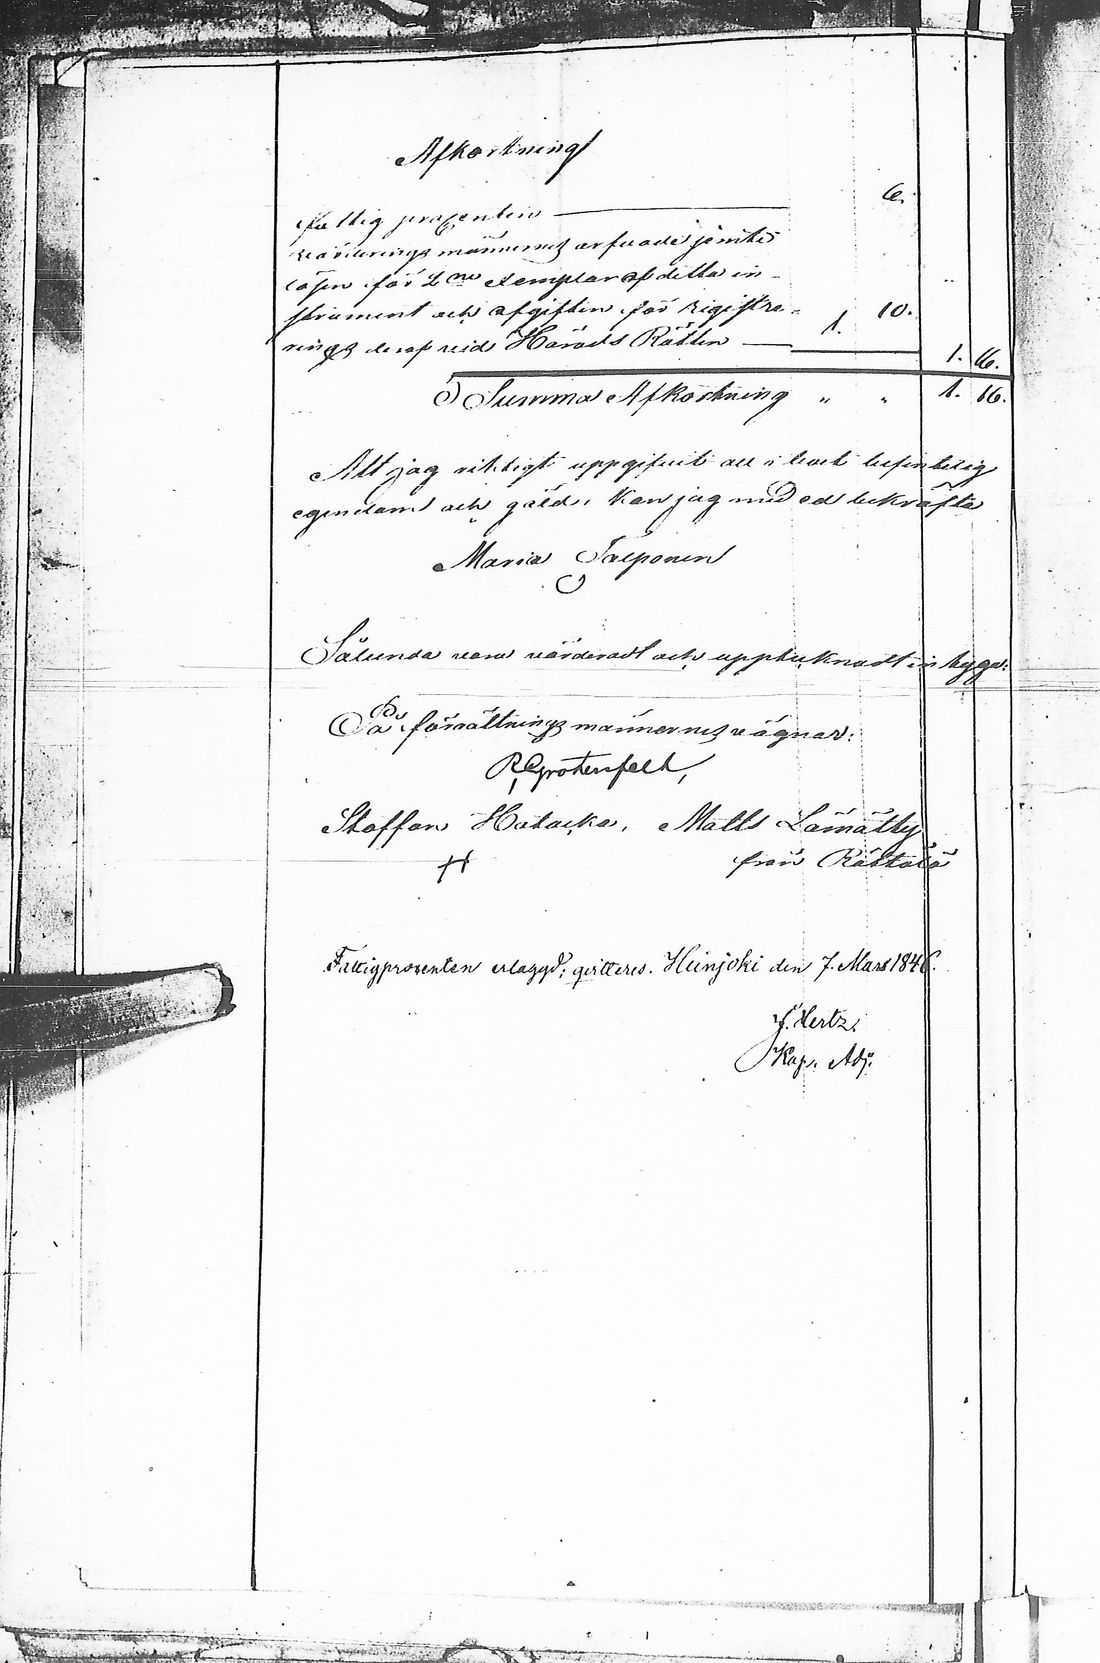 Afkortning
Fattig procenten 6.
värderings männernes arfvode jemte
lösen för 2ne Exemplar af detta in-
strument och afgiften för registre-
rings deraf vid Härads Rätten 1. 10. 1. 16.
Summa Afkortning " " 1. 16.
Att jag riktigt uppgifvit all i boet befintelig
egendom och gäld, kan jag med ed bekräfta
Maria Talponen
Sålunda vara värderadt och uppteknadt in tyga:
På förrättnings männernes vägnar:
R Grotenfelt,
Staffan Hatacka, Matts Lämätty
från Rättälä
Fattigprocenten erlagd; qvitteres. Heinjoki den 7. Mars 1846.
J. Hertz.
Kap. Adj.